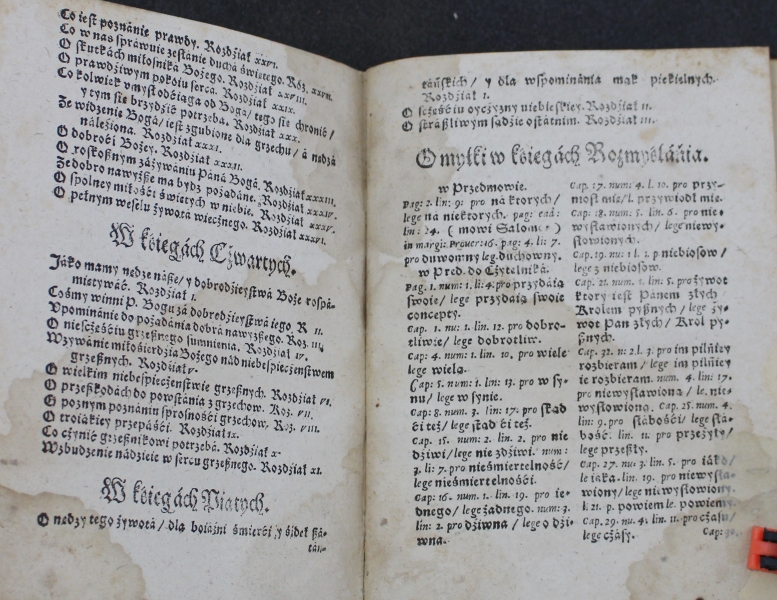 Co iest poznánie prawdy. Rozdźiał xxvi.
Co w nas spráwuie zesłánie duchá świętego. Roz. xxvii.
O skutkách miłośniká Bożego. Rozdźiał xxviii.
O prawdźiwym pokoiu sercá. Rozdźiał xxix.
Co kolwiek vmysł odćiąga od Bogá/ tego sie chronić/
y tym sie brzydźić potrzebá. Rozdźiał xxx.
Ze widzenie Bogá/ iest zgubione dla grzechu/ á nędzá
náleźiona. Rozdźiał xxxi.
O dobroći Bożey. Rozdźiał xxxii.
O roskosznym záżywániu Páná Bogá. Rozdźiał xxxiii.
Ze dobro nawyższe ma bydź pożądáne. Rozdźiał xxxiv.
O społney miłośći świętych w niebie. Rozdźiał xxxv.
O pełnym weselu żywotá wiecznego. Rozdźiał xxxvi.
W kśięgách Czwartych.
Jáko mamy nędze násze/ y dobrodźieystwá Boże rospá-
miętywáć. Rozdźiał i.
Cośmy winni P. Bogu zá dobrodźieystwá iego. R ii.
Vpominánie do pożądánia dobrá nawyższego. Roz. iii.
O nieszczęśćiu grzesznego sumnienia. Rozdźiał iv.
Wzywánie miłośierdźia Bożego nád niebespieczeństwem
grzesznych. Rozdźiał v.
O wielkim niebespieczeństwie grzesznych. Rozdźiał vi.
O przeszkodách do powstánia z grzechow. Roz. vii.
O poznym poznániu sprosnośći grzechow. Roz. viii.
O troiákiey przepáśći. Rozdźiał ix.
Co czynić grzesznikowi potrzebá. Rozdźiał x.
Wzbudzenie nádźieie w sercu grzesznego. Rozdźiał xi.
W kśięgách Piątych.
O nędzy tego żywotá/ dla boiáźni śmierći/ y śideł szá-
tań-
táńskich/ y dla wspominánia mąk piekielnych.
Rozdźiał i.
O szczęśćiu oyczyzny niebieskiey. Rozdźiał ii.
O strászliwym sądźie ostátnim. Rozdźiał iii.
Omyłki w kśięgách Rozmyślánia.
w Przedmowie.
pag: 2. lin: 9: pro ná ktorych/
lege ná niektorych. pag: ead:
lin: 24. ( mowi Salomon )
in margi: Prouer: 16. pag: 4. li: 7.
pro duwomny leg. duchowny.
w Pred. do Czytelniká.
Pag. 1. num: 1. li: 4. pro przydáią
swoie/ lege przydáią swoie
concepty.
Cap. 1. nu: 1. lin. 12. pro dobro-
tliwie/ lege dobrotliw.
Cap: 4. num: 1. lin. 10. pro wiele
lege wielą.
Cap: 5. num: 1. lin: 13. pro w sy-
nu/ lege w synie.
Cap: 8. num: 3. lin: 17. pro skąd
ći też/ lege skąd ći też.
Cap. 15. num: 2. lin: 2. pro nie
dźiwi/ lege nie zdźiwi. num:
3. li: 7. pro nieśmiertelność/
lege nieśmiertelnośći.
Cap: 16. num: 1. lin. 19. pro ie-
dnego/ lege żadnego. num: 3.
lin: 2. pro dźiwna / lege o dźi-
wna.
Cap. 17. num: 4. l. 10. pro przy-
Cap: 18. num: 5. lin. 6. pro nie-
wysławionych/ lege niewy-
słowionych.
Cap. 19. nu: 1 l. 1. p niebiosow/
lege z niebiosow.
Cap: 21. num: 1. lin: 5. pro żywot
ktory iest Pánem złych/
Krolem pysznych/ lege ży-
wot Pan złych/ Krol py-
sznych.
Cap. 32. n: 2. l. 3. pro im pilniey
rozbieram/ lege im pilniey
ie rozbieram. num. 4. lin: 17.
pro niewysławiona/ le. nie-
wysłowiona. Cap. 25. num. 4.
lin: 9. pro słábośći/ lege słá-
bość. lin. 11. pro przeżyły/
lege przeszły.
Cap. 27. nu: 3. lin. 5. pro iáko/
le iáka. lin. 19. pro niewysła-
wiony/ lege niewysłowiony.
l. 21. p. powiem le. powiem.
Cap. 29. nu. 4. lin. 11. pro czásu/
lege czásy.